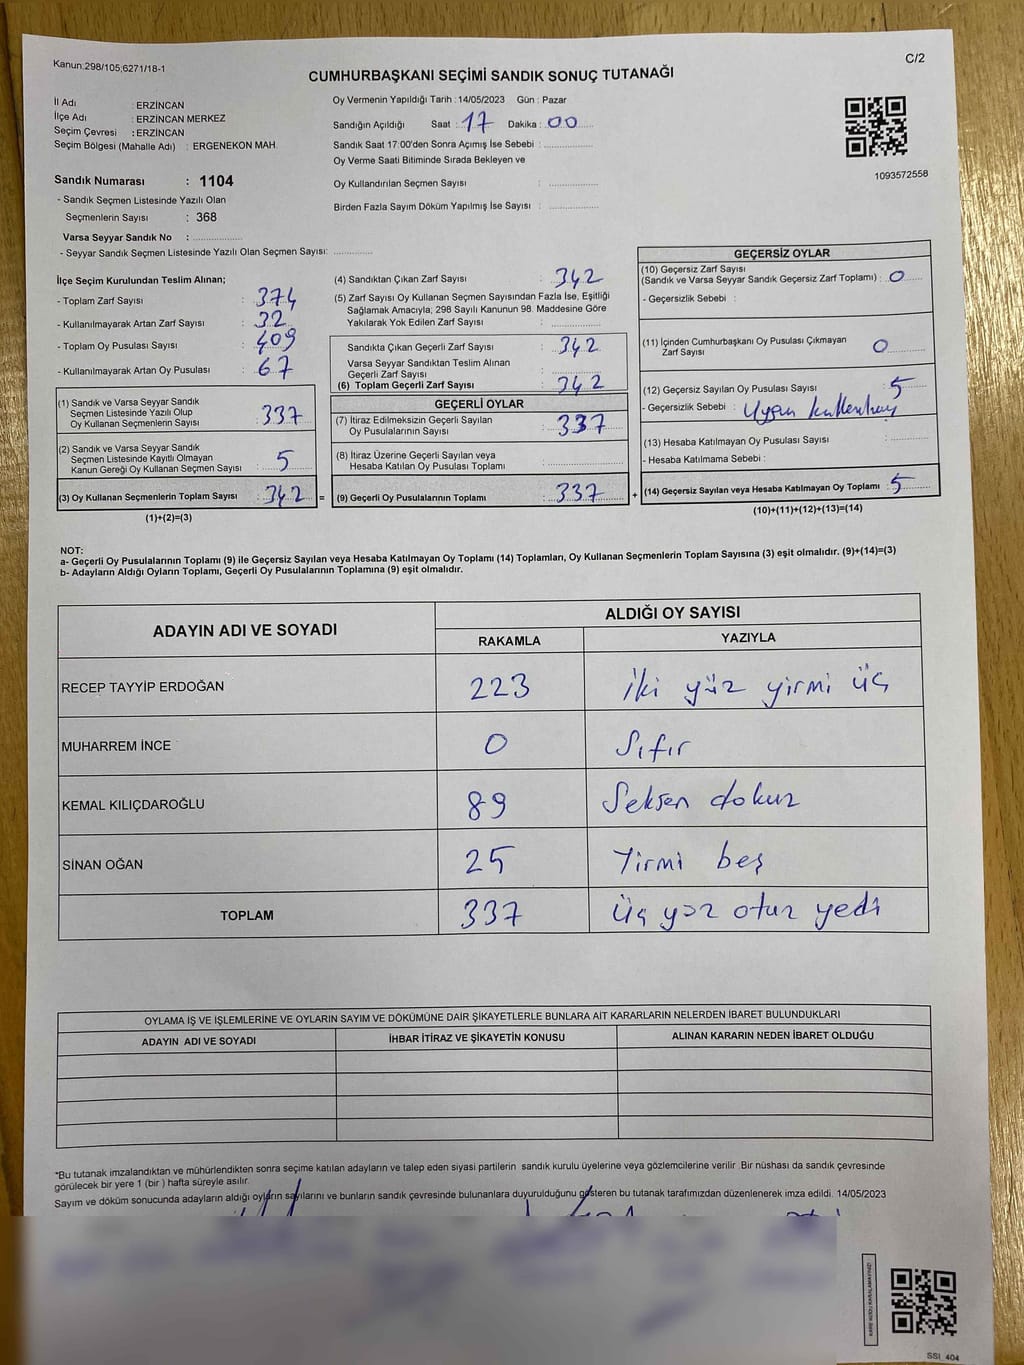 Kanun:298/105;6271/18-1
C/2
CUMHURBAŞKANI SEÇİMİ SANDIK SONUÇ TUTANAĞI
İl Adı : ERZİNCAN
İlçe Adı : ERZİNCAN MERKEZ
Seçim Çevresi : ERZİNCAN
Seçim Bölgesi (Mahalle Adı) : ERGENEKON MAH.
Sandık Numarası : 1104
- Sandık Seçmen Listesinde Yazılı Olan
Seçmenlerin Sayısı : 368
Varsa Seyyar Sandık No : ....................
- Seyyar Sandık Seçmen Listesinde Yazılı Olan Seçmen Sayısı: ................
Oy Vermenin Yapıldığı Tarih : 14/05/2023 Gün : Pazar
Sandığın Açıldığı Saat : 17 Dakika : 00
Sandık Saat 17:00'den Sonra Açımış İse Sebebi : ....................
Oy Verme Saati Bitiminde Sırada Bekleyen ve
Oy Kullandırılan Seçmen Sayısı : ....................
Birden Fazla Sayım Döküm Yapılmış İse Sayısı : ....................
1093572558
İlçe Seçim Kurulundan Teslim Alınan;
- Toplam Zarf Sayısı : 374
- Kullanılmayarak Artan Zarf Sayısı : 32
- Toplam Oy Pusulası Sayısı : 409
- Kullanılmayarak Artan Oy Pusulası : 67
(1) Sandık ve Varsa Seyyar Sandık
Seçmen Listesinde Yazılı Olup
Oy Kullanan Seçmenlerin Sayısı : 337
(2) Sandık ve Varsa Seyyar Sandık
Seçmen Listesinde Kayıtlı Olmayan
Kanun Gereği Oy Kullanan Seçmen Sayısı : 5
(3) Oy Kullanan Seçmenlerin Toplam Sayısı : 342 =
(1)+(2)=(3)
(4) Sandıktan Çıkan Zarf Sayısı : 342
(5) Zarf Sayısı Oy Kullanan Seçmen Sayısından Fazla İse, Eşitliği
Sağlamak Amacıyla; 298 Sayılı Kanunun 98. Maddesine Göre
Yakılarak Yok Edilen Zarf Sayısı : ....................
Sandıkta Çıkan Geçerli Zarf Sayısı : 342
Varsa Seyyar Sandıktan Teslim Alınan
Geçerli Zarf Sayısı : ....................
(6) Toplam Geçerli Zarf Sayısı : 342
GEÇERLİ OYLAR
(7) İtiraz Edilmeksizin Geçerli Sayılan
Oy Pusulalarının Sayısı : 337
(8) İtiraz Üzerine Geçerli Sayılan veya
Hesaba Katılan Oy Pusulası Toplamı : ....................
(9) Geçerli Oy Pusulalarının Toplamı : 337 +
GEÇERSİZ OYLAR
(10) Geçersiz Zarf Sayısı
(Sandık ve Varsa Seyyar Sandık Geçersiz Zarf Toplamı) : 0
- Geçersizlik Sebebi :
(11) İçinden Cumhurbaşkanı Oy Pusulası Çıkmayan
Zarf Sayısı 0
(12) Geçersiz Sayılan Oy Pusulası Sayısı : 5
- Geçersizlik Sebebi : Uygun
(13) Hesaba Katılmayan Oy Pusulası Sayısı : ............
- Hesaba Katılmama Sebebi :
(14) Geçersiz Sayılan veya Hesaba Katılmayan Oy Toplamı : 5
(10)+(11)+(12)+(13)=(14)
NOT:
a- Geçerli Oy Pusulalarının Toplamı (9) ile Geçersiz Sayılan veya Hesaba Katılmayan Oy Toplamı (14) Toplamları, Oy Kullanan Seçmenlerin Toplam Sayısına (3) eşit olmalıdır. (9)+(14)=(3)
b- Adayların Aldığı Oyların Toplamı, Geçerli Oy Pusulalarının Toplamına (9) eşit olmalıdır.
ADAYIN ADI VE SOYADI
ALDIĞI OY SAYISI
RAKAMLA YAZIYLA
RECEP TAYYİP ERDOĞAN 223 İki yüz yirmi üç
MUHARREM İNCE 0 Sıfır
KEMAL KILIÇDAROĞLU 89 Seksen dokuz
SİNAN OĞAN 25 Yirmi beş
TOPLAM 337 Üç yüz otuz yedi
OYLAMA İŞ VE İŞLEMLERİNE VE OYLARIN SAYIM VE DÖKÜMÜNE DAİR ŞİKAYETLERLE BUNLARA AİT KARARLARIN NELERDEN İBARET BULUNDUKLARI
ADAYIN ADI VE SOYADI İHBAR İTİRAZ VE ŞİKAYETİN KONUSU ALINAN KARARIN NEDEN İBARET OLDUĞU
*Bu tutanak imzalandıktan ve mühürlendikten sonra seçime katılan adayların ve talep eden siyasi partilerin sandık kurulu üyelerine veya gözlemcilerine verilir .Bir nüshası da sandık çevresinde
görülecek bir yere 1 (bir ) hafta süreyle asılır.
Sayım ve döküm sonucunda adayların aldığı oyların sayılarını ve bunların sandık çevresinde bulunanlara duyurulduğunu gösteren bu tutanak tarafımızdan düzenlenerek imza edildi. 14/05/2023
KARE KODU KARALAMAYINIZ!
SSI_404